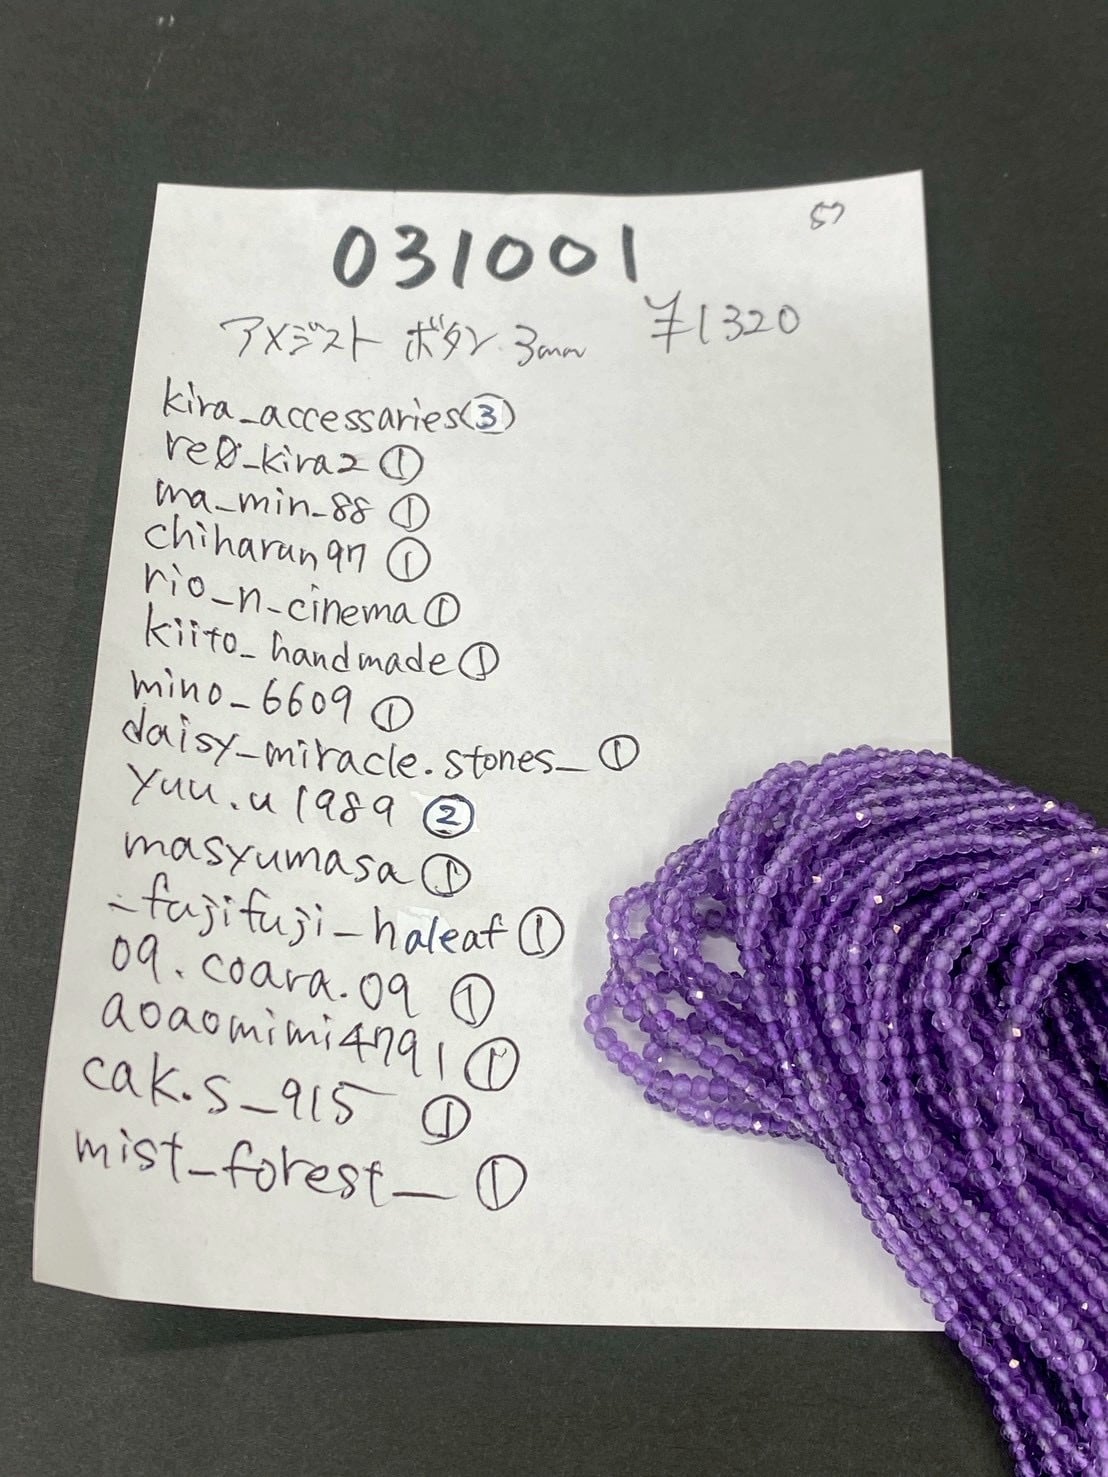 57
031001
アメジスト ボタン 3mm ¥1320
kira_accessaries③
re0_kira2 ①
ma_min_88 ①
chiharun97 ①
rio_n_cinema ①
kiito_handmade ①
mino_6609 ①
daisy_miracle.stones_ ①
yuu.u1989 ②
masyumasa ①
_fujifuji_haleaf ①
09.coara.09 ①
aoaomimi4791 ①
cak.s_915 ①
mist_forest_ ①